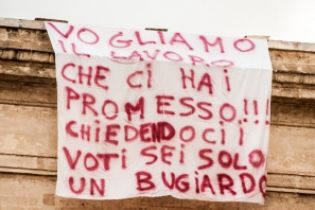 VOGLIAMO
IL LAVORO
CHE CI HAI
PROMESSO!!!
CHIEDENDOCI
VOTI SEI SOLO
UN BUGIARDO